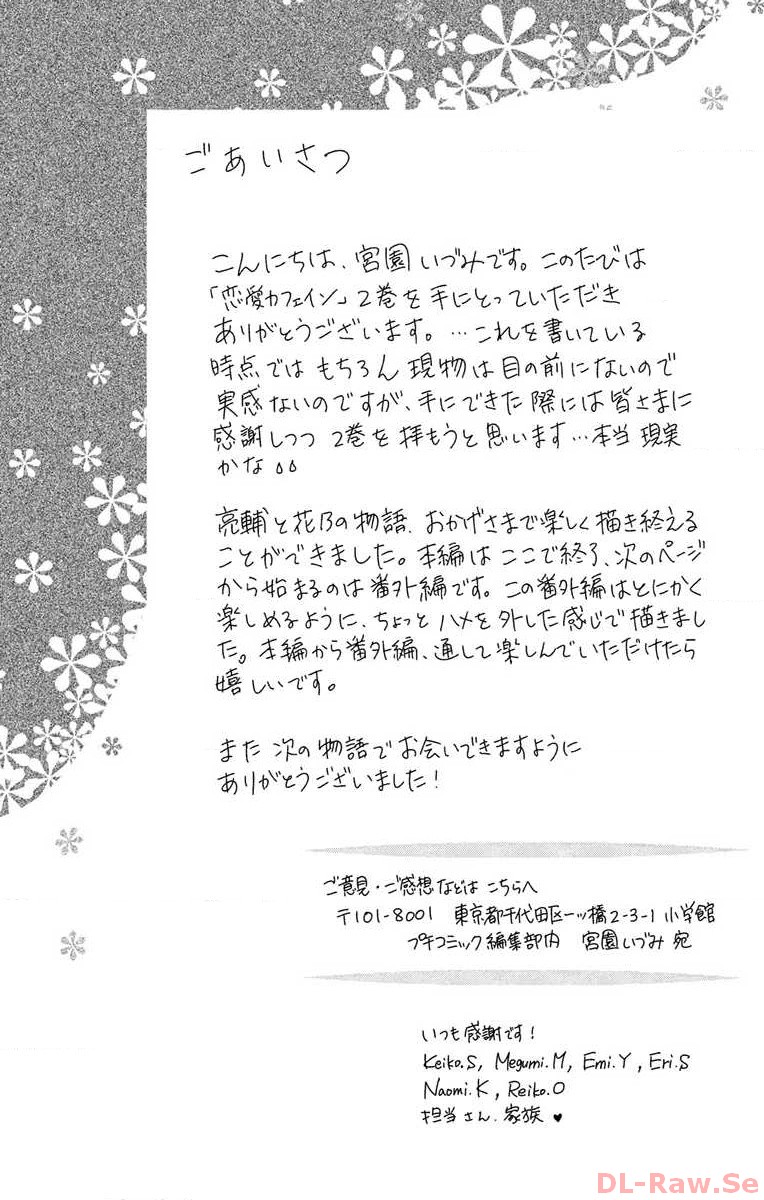 ごあいさつ
こんにちは、宮園いづみです。このたびは
「恋愛カフェイン」2巻を手にとっていただき
ありがとうございます。…これを書いている
時点ではもちろん現物は目の前にないので
実感ないのですが、手にできた際には皆さまに
感謝しつつ2巻を拝もうと思います…本当現実
かな
亮輔と花乃の物語、おかげさまで楽しく描き終える
ことができました。本編はここで終了、次のページ
から始まるのは番外編です。この番外編はとにかく
楽しめるように、ちょっとハメを外した感じで描きまし
た。本編から番外編、通して楽しんでいただけたら
嬉しいです。
また次の物語でお会いできますように
ありがとうございました!
ご意見・ご感想などはこちらへ
〒101-8001 東京都千代田区一ッ橋2-3-1 小学館
プチコミック編集部内 宮園いづみ宛
いつも感謝です!
Keiko.S, Megumi.M, Emi.Y, Eri.S
Naomi.K, Reiko.O
担当さん、家族♥
DL-Raw.Se